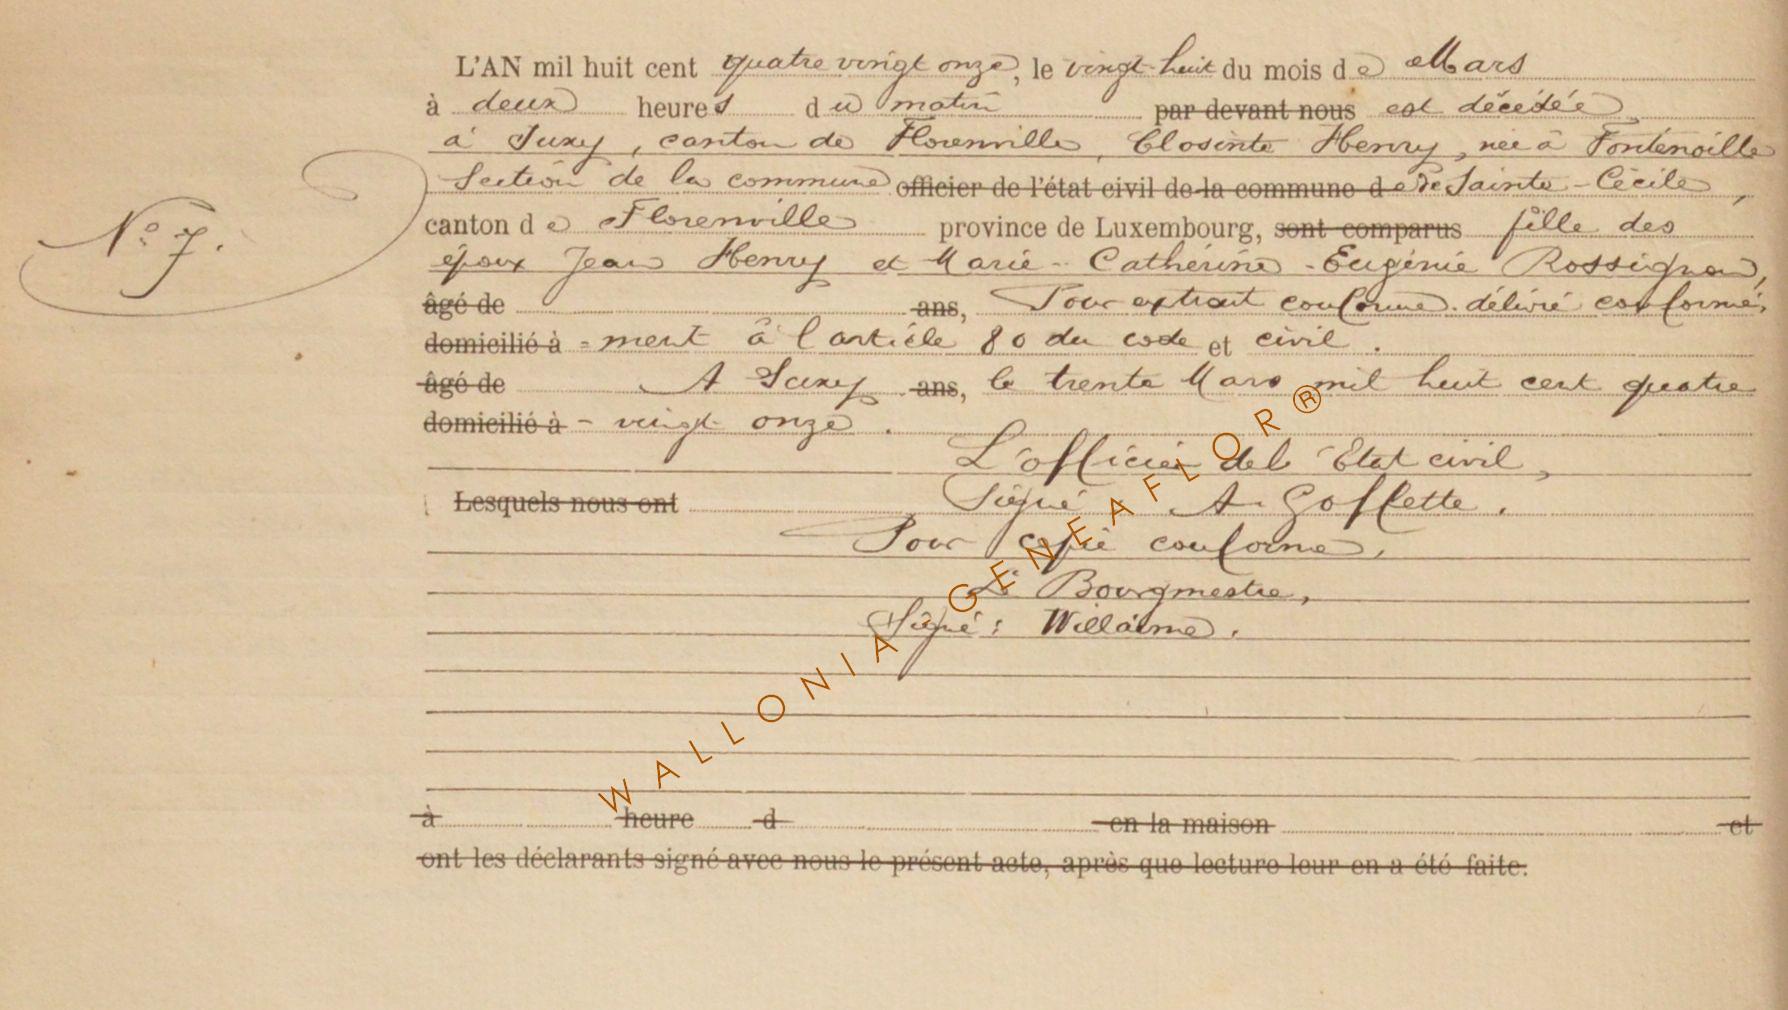 L'AN mil huit cent quatre vingt onze, le vingt-huit du mois de Mars
à deux heures du matin par devant nous est décédée
à Suxy, canton de Florenville, Closinte Henry, née à Fontenoille
Section de la commune officier de l'état civil de la commune de de Sainte-Cécile,
N° 7.
canton de Florenville province de Luxembourg, sont comparus fille des
époux Jean Henry et Marie-Catherine-Eugénie Rossignon,
âgé de ans, Pour extrait conforme délivré conformé-
domicilié à -ment à l'article 80 du code et civil.
âgé de A Suxy ans, le trente Mars mil huit cent quatre
domicilié à - vingt onze.
L'officier de l'Etat civil,
Lesquels nous ont Signé A. Goffette.
Pour copie conforme,
Le Bourgmestre,
Signé: Willaime.
à heure d en la maison et
ont les déclarants signé avec nous le présent acte, après que lecture leur en a été faite.
WALLONIA - GENEAFLOR ®